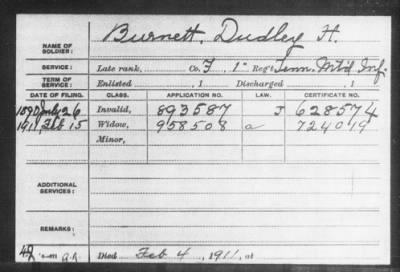 NAME OF SOLDIER: Burnett, Dudley H.
SERVICE: Late rank, Co. F, 1" Reg't Tenn. Mtd Inf.
TERM OF SERVICE: Enlisted , 1 Discharged , 1
DATE OF FILING. CLASS. APPLICATION NO. LAW. CERTIFICATE NO.
1890 July 26 Invalid, 893587 J 628574
1911, Feb 15 Widow, 958508 a 724049
Minor,
ADDITIONAL SERVICES:
REMARKS:
Died Feb 4, 1911, at